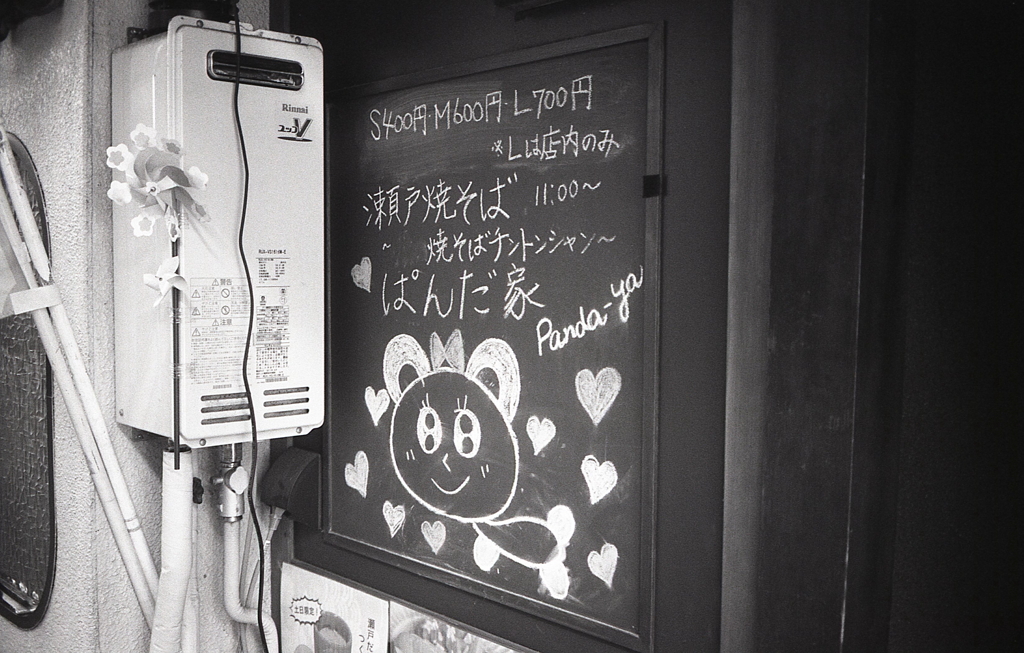 Rinnai
ユッコV
警告
注意
S400円・M600円・L700円
※Lは店内のみ
瀬戸焼そば 11:00〜
〜焼そばチントンシャン〜
ぱんだ家
Panda-ya
土日限定!
瀬戸だ
つく